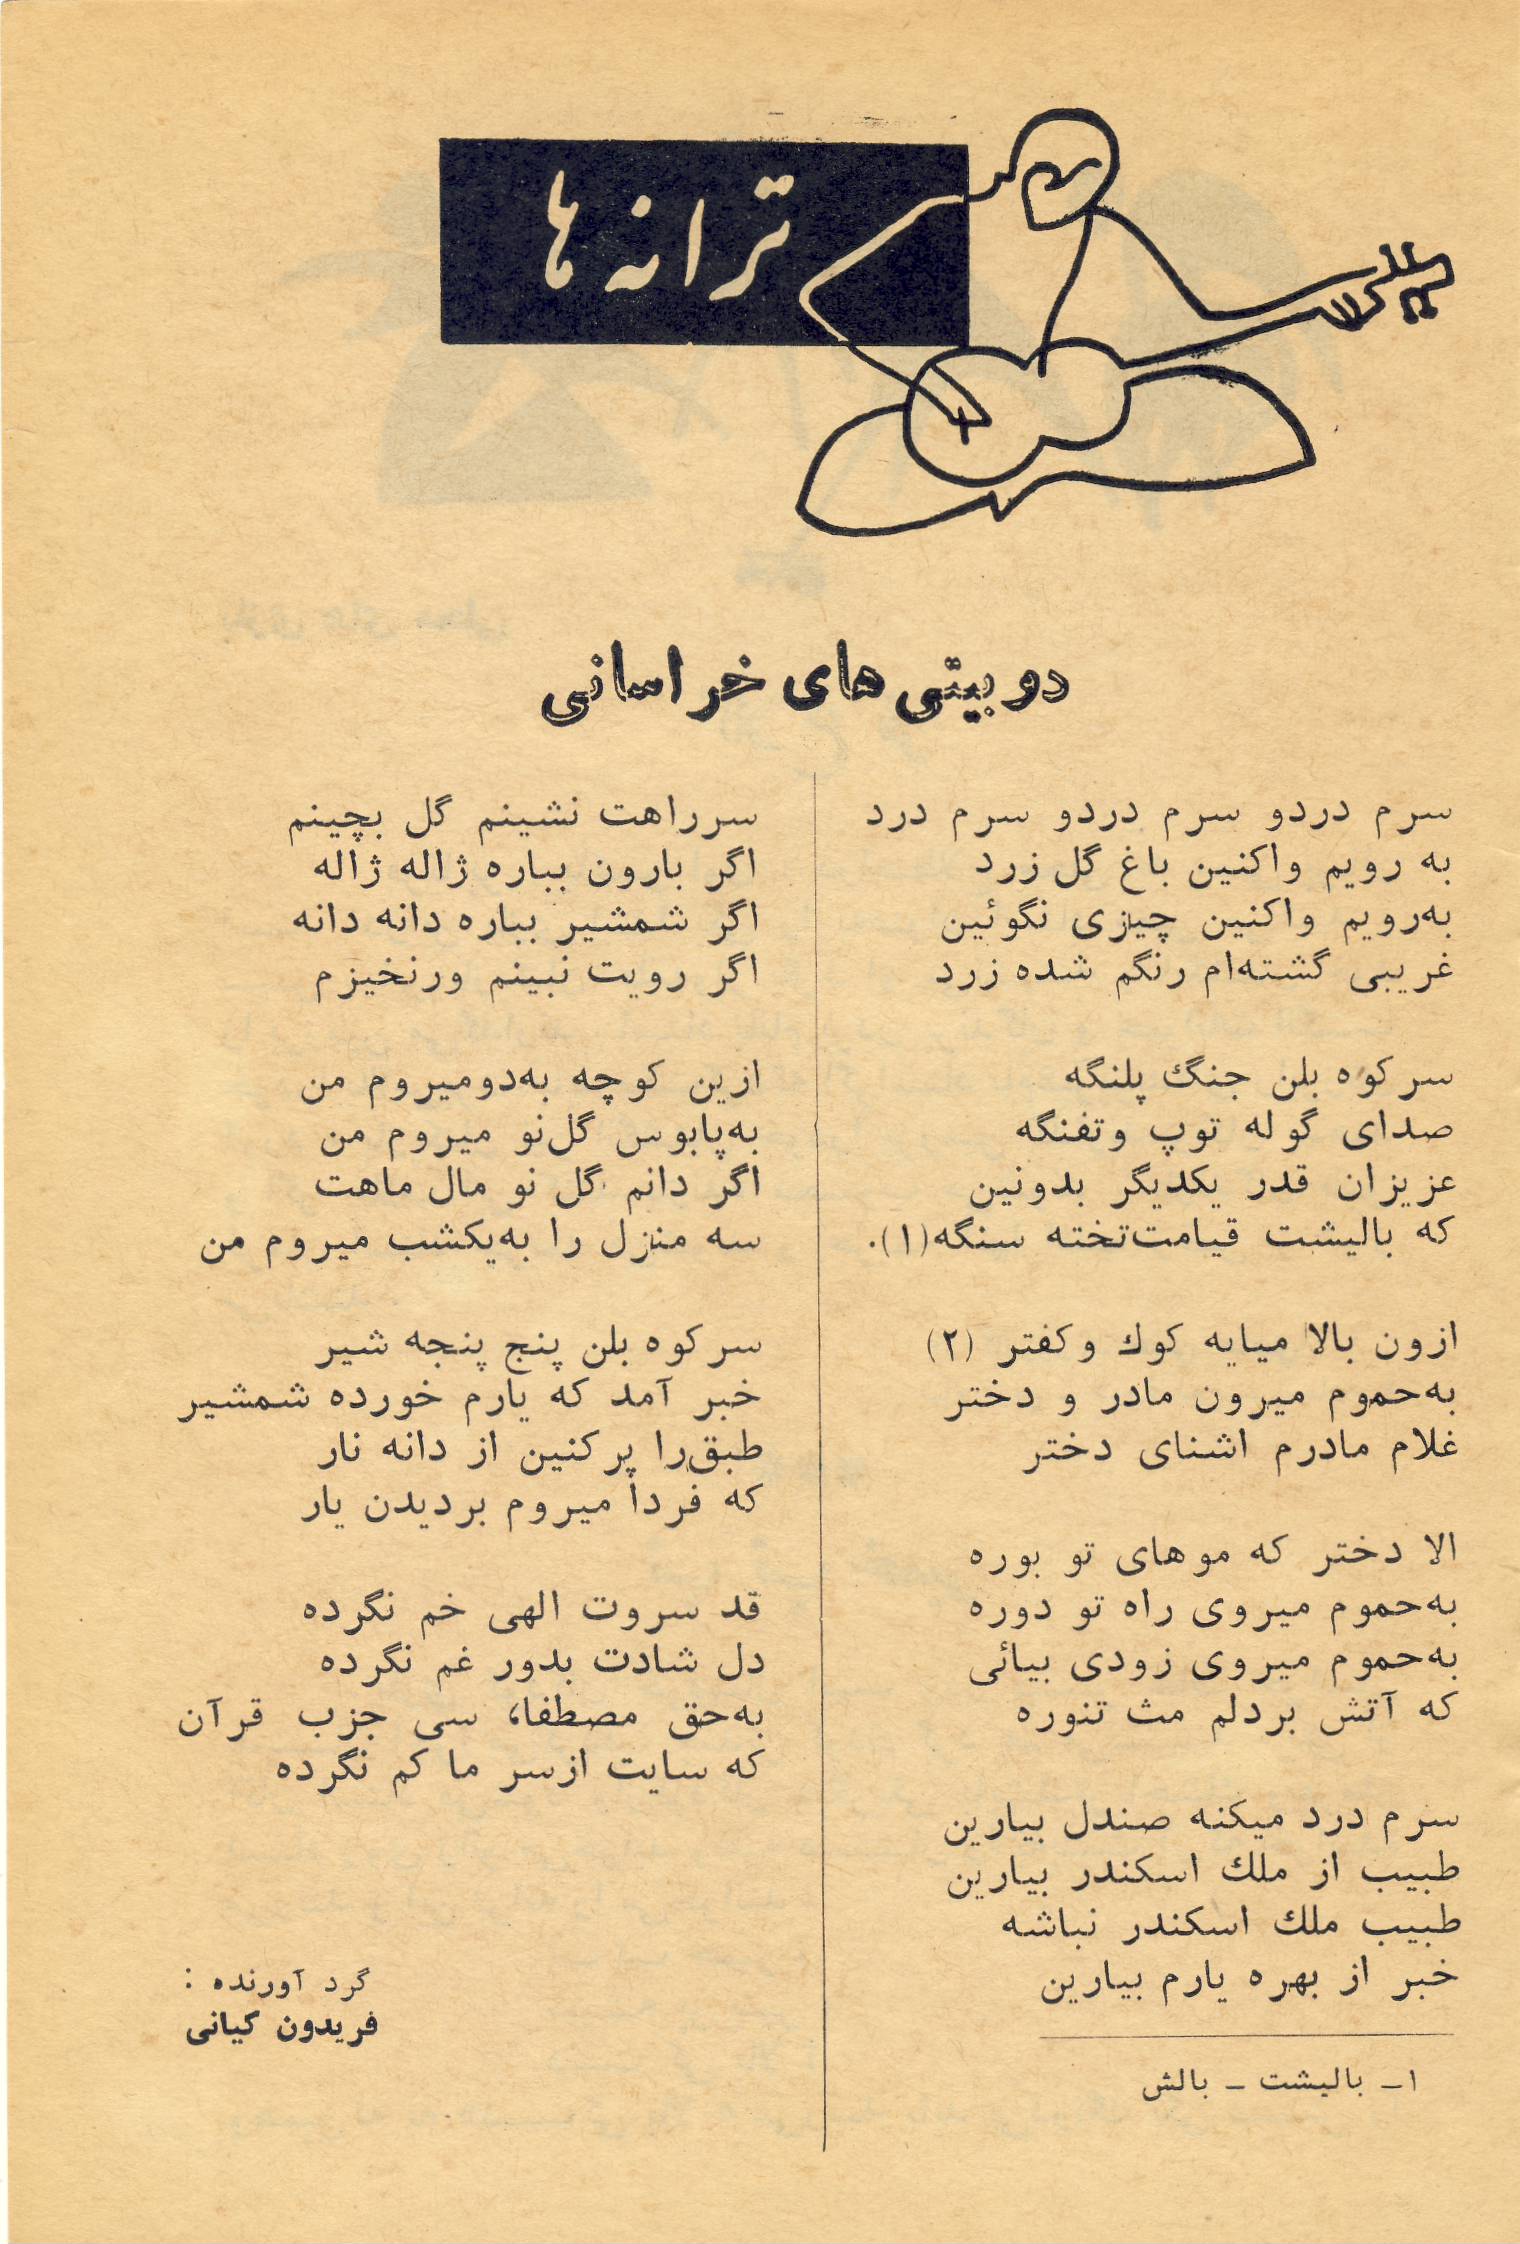 ترانه ها
دوبیتی های خراسانی
سرم دردو سرم دردو سرم درد
به رویم واکنین باغ گل زرد
به‌رویم واکنین چیزی نگوئین
غریبی گشته‌ام رنگم شده زرد
سر کوه بلن جنگ پلنگه
صدای گوله توپ وتفنگه
عزیزان قدر یکدیگر بدونین
که بالیشت قیامت‌تخته سنگه(۱).
ازون بالا میایه کوك وکفتر (۲)
به‌حموم میرون مادر و دختر
غلام مادرم اشنای دختر
الا دختر که موهای تو بوره
به‌حموم میروی راه تو دوره
به‌حموم میروی زودی بیائی
که آتش بردلم مث تنوره
سرم درد میکنه صندل بیارین
طبیب از ملك اسکندر بیارین
طبیب ملك اسکندر نباشه
خبر از بهره یارم بیارین
۱ــ بالیشت ــ بالش
سرراهت نشینم گل بچینم
اگر بارون بباره ژاله ژاله
اگر شمشیر بباره دانه دانه
اگر رویت نبینم ورنخیزم
ازین کوچه به‌دومیروم من
به‌پابوس گل‌نو میروم من
اگر دانم گل نو مال ماهت
سه منزل را به‌یکشب میروم من
سرکوه بلن پنج پنجه شیر
خبر آمد که یارم خورده شمشیر
طبق‌را پرکنین از دانه نار
که فردا میروم بردیدن یار
قد سروت الهی خم نگرده
دل شادت بدور غم نگرده
به‌حق مصطفا، سی جزب قرآن
که سایت ازسر ما کم نگرده
گرد آورنده :
فریدون کیانی